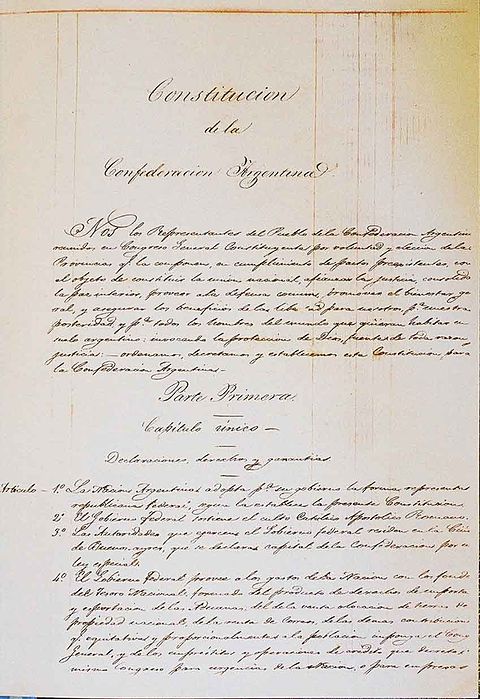 Constitucion
de la
Confederacion Argentina
Nos los Representantes del Pueblo de la Confederacion Argentina
reunidos en Congreso General Constituyente por voluntad y eleccion de las
Provincias qe. la componen, en cumplimiento de pactos preexistentes, con
el objeto de constituir la union nacional, afianzar la justicia, consolidar
la paz interior, proveer a la defensa comun, promover el bienestar ge
ral, y asegurar los beneficios de la libertad para nosotros, pa. nuestra
posteridad y pa. todos los hombres del mundo que quieran habitar en
suelo argentino: invocando la proteccion de Dios, fuente de toda razon y
justicia: — ordenamos, decretamos y establecemos esta Constitucion, para
la Confederacion Argentina.—
Parte Primera.
Capítulo único —
Declaraciones, derechos y garantias
Articulo — 1º. La Nacion Argentina adopta pa. su gobierno la forma representativa
republicana federal, segun la establece la presente Constitucion.
2º. El Gobierno federal sostiene el culto Católico Apostólico Romano.
3º. Las Autoridades que ejercen el Gobierno federal residen en la Ciudad
de Buenos-ayres, que se declara capital de la Confederacion por una
ley especial.
4º. El Gobierno Federal provee a los gastos de la Nacion con los fondos
del Tesoro Nacional, formado del producto de derechos de importacion
y esportacion de las Aduanas, del de la venta o locacion de tierras de
propiedad nacional, de la renta de Correos, de las demas contribuciones
qe. equitativa y proporcionalmente a la poblacion imponga el Congreso
General, y de los empréstitos y operaciones de crédito que decrete el
mismo Congreso para urgencias de la Nacion, o para empresas